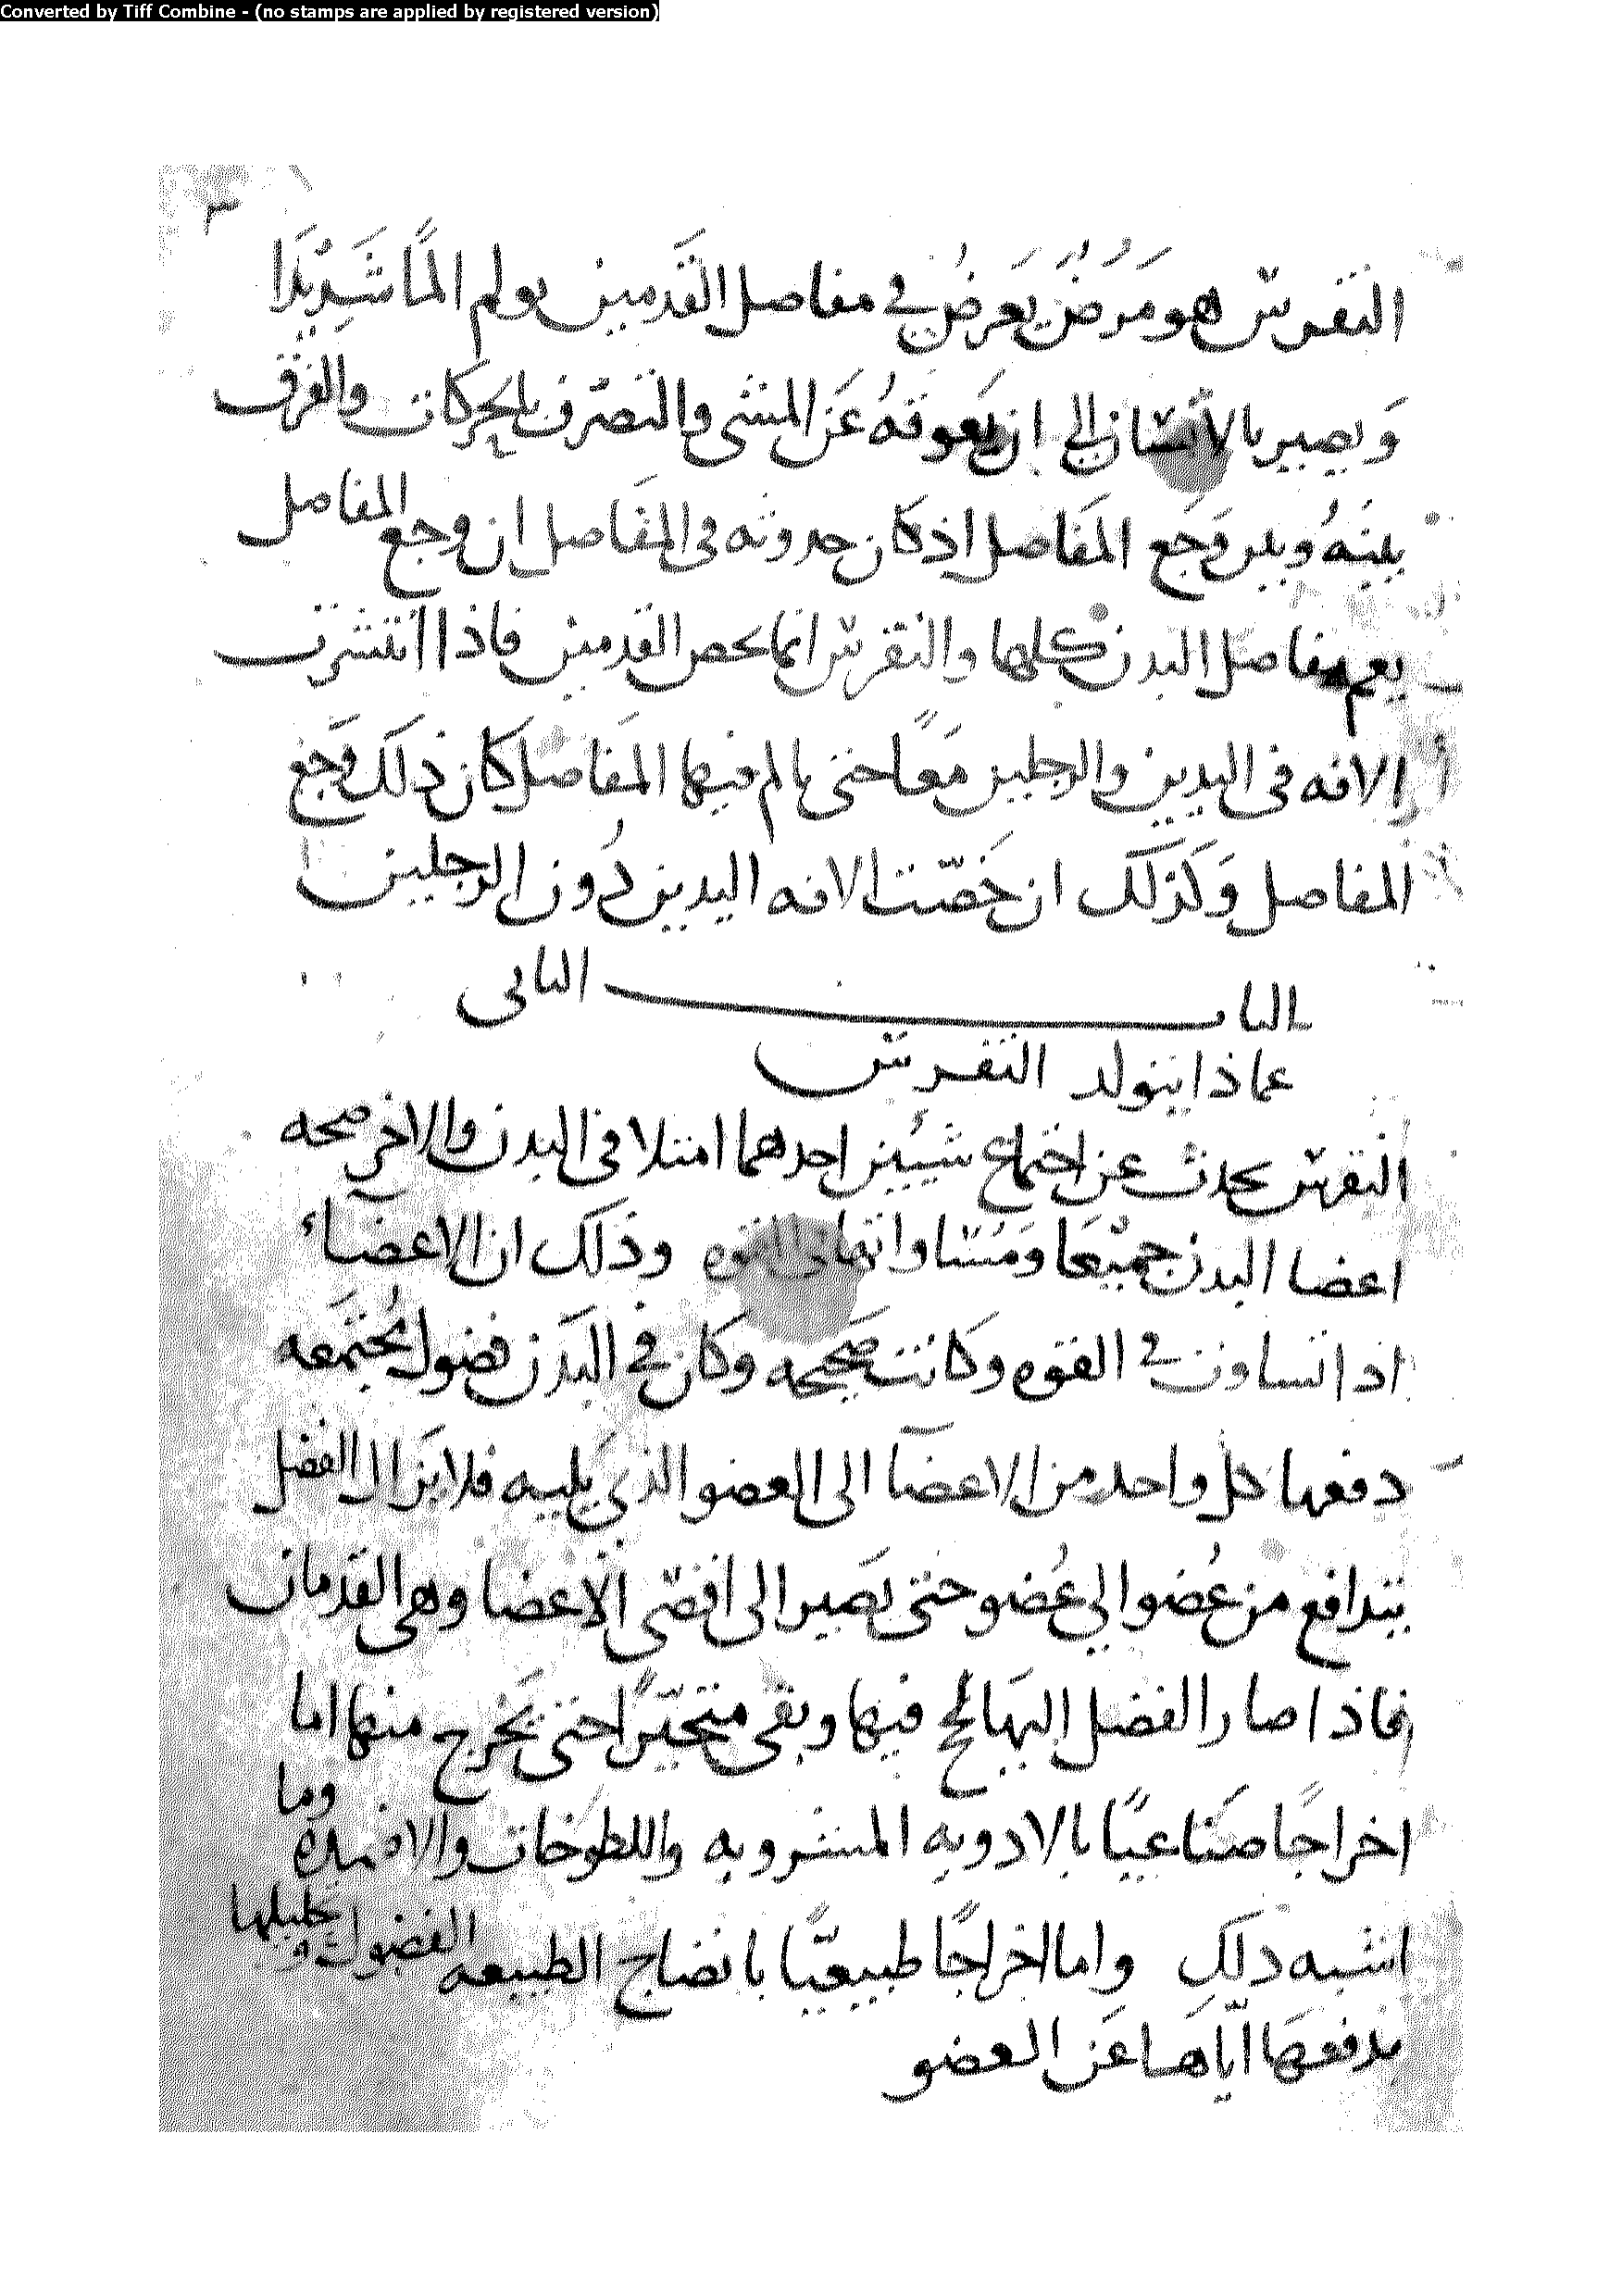 Converted by Tiff Combine - (no stamps are applied by registered version)
٣
النقرس هو مَرَضٌ يَعرضُ في مفاصل القَدمين يولم المًا شَدِيْدًا
وَيصير بالأنسان الي ان يَعوقهُ عَن المشى والتصرّف بالحركات والفرق
بينهُ وبين وَجَع المَفاصل اذ كان حدوثه فى المفَاصل ان وجع المفاصل
يعم مفاصل البدن كلها والنقرس انما يخص القدمين فاذا انتشرت
الافه فى اليدين والرجلين مَعًا حتى يالم فيها المفَاصل كان ذلك وَجَع
المفاصل وَكذلك ان خَصّت الافه اليدين دُون الرجلين
الباب الثانى
عماذا يتولد النقرس
النقرس يحدث عن اجتماع شيئين احدهما امتلا فى البدن والاخر صحه
اعضا البدن جميْعَا وَمُتساواتها فى القوه وذلك ان الاعضآء
اذا تساوت في القوه وكانت صَحيحه وكان في البَدن فضول مُجتَمَعه
دفعها كل واحد من الاعضآ الى العضو الذي يَليه فلا يزَال الفضل
يتدافع من عُضو الي عُضو حتى يَصير الى اقصى الاعضا وهى القدمان
فاذا صار الفضل اليهَا لحج فيها وبقى متحيّرًا حتى يَخرج منها اما
اخراجًا صنَاعيًا بالادويه المشروبه واللطوخات والاضمده وما
اشبه ذلك واما اخراجًا طبيعيًّا بانضاج الطبيعه الفضول وتحليلها
بدفعهَا ايّاهَا عَن العضو